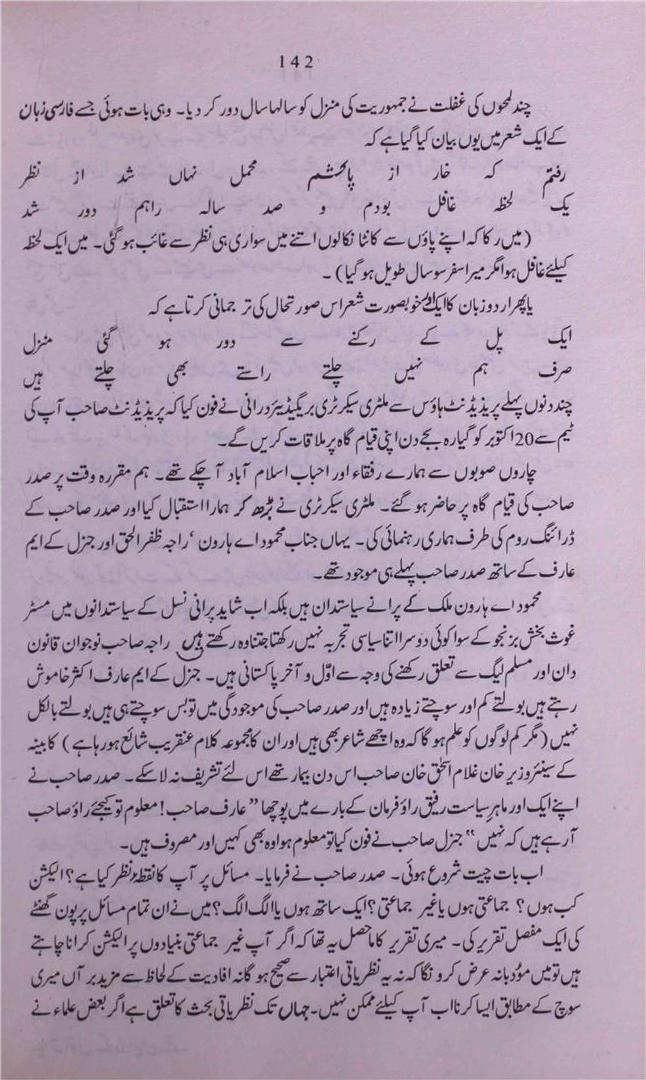 142
چند لمحوں کی غفلت نے جمہوریت کی منزل کو سالہا سال دور کر دیا۔ وہی بات ہوئی جسے فارسی زبان
کے ایک شعر میں یوں بیان کیا گیا ہے کہ
رفتم کہ خار از پا کشم محمل نہاں شد از نظر
یک لحظہ غافل بودم و صد سالہ راہم دور شد
(میں رکا کہ اپنے پاؤں سے کانٹا نکالوں اتنے میں سواری ہی نظر سے غائب ہو گئی۔ میں ایک لحظہ
کیلئے غافل ہوا مگر میرا سفر سو سال طویل ہو گیا)۔
یا پھر اردو زبان کا ایک اور خوبصورت شعر اس صورتحال کی ترجمانی کرتا ہے کہ
ایک پل کے رکنے سے دور ہو گئی منزل
صرف ہم نہیں چلتے راستے بھی چلتے ہیں
چند دنوں پہلے پریذیڈنٹ ہاؤس سے ملٹری سیکرٹری بریگیڈیئر درانی نے فون کیا کہ پریذیڈنٹ صاحب آپ کی
ٹیم سے 20 اکتوبر کو گیارہ بجے دن اپنی قیام گاہ پر ملاقات کریں گے۔
چاروں صوبوں سے ہمارے رفقاء اور احباب اسلام آباد آ چکے تھے۔ ہم مقررہ وقت پر صدر
صاحب کی قیام گاہ پر حاضر ہو گئے۔ ملٹری سیکرٹری نے بڑھ کر ہمارا استقبال کیا اور صدر صاحب کے
ڈرائنگ روم کی طرف ہماری رہنمائی کی۔ یہاں جناب محمود اے ہارون، راجہ ظفر الحق اور جنرل کے ایم
عارف کے ساتھ صدر صاحب پہلے ہی موجود تھے۔
محمود اے ہارون ملک کے پرانے سیاستدان ہیں بلکہ اب شاید پرانی نسل کے سیاستدانوں میں مسٹر
غوث بخش بزنجو کے سوا کوئی دوسرا اتنا سیاسی تجربہ نہیں رکھتا جتنا وہ رکھتے ہیں راجہ صاحب نوجوان قانون
دان اور مسلم لیگ سے تعلق رکھنے کی وجہ سے اوّل و آخر پاکستانی ہیں۔ جنرل کے ایم عارف اکثر خاموش
رہتے ہیں بولتے کم اور سوچتے زیادہ ہیں اور صدر صاحب کی موجودگی میں تو بس سوچتے ہی ہیں بولتے بالکل
نہیں (مگر کم لوگوں کو علم ہو گا کہ وہ اچھے شاعر بھی ہیں اور ان کا مجموعہ کلام عنقریب شائع ہو رہا ہے) کابینہ
کے سینئر وزیر خان غلام اسحٰق خان صاحب اس دن بیمار تھے اس لئے تشریف نہ لا سکے۔ صدر صاحب نے
اپنے ایک اور ماہر سیاست رفیق راؤ فرمان کے بارے میں پوچھا "عارف صاحب! معلوم تو کیجئے راؤ صاحب
آ رہے ہیں کہ نہیں" جنرل صاحب نے فون کیا تو معلوم ہوا وہ بھی کہیں اور مصروف ہیں۔
اب بات چیت شروع ہوئی۔ صدر صاحب نے فرمایا۔ مسائل پر آپ کا نقطۂ نظر کیا ہے؟ الیکشن
کب ہوں؟ جماعتی ہوں یا غیر جماعتی؟ ایک ساتھ ہوں یا الگ الگ؟ میں نے ان تمام مسائل پر پون گھنٹے
کی ایک مفصل تقریر کی۔ میری تقریر کا ماحصل یہ تھا کہ اگر آپ غیر جماعتی بنیادوں پر الیکشن کرانا چاہتے
ہیں تو میں مؤدبانہ عرض کرونگا کہ نہ یہ نظریاتی اعتبار سے صحیح ہو گا نہ افادیت کے لحاظ سے مزید بر آں میری
سوچ کے مطابق ایسا کرنا اب آپ کیلئے ممکن نہیں۔ جہاں تک نظریاتی بحث کا تعلق ہے اگر بعض علماء نے